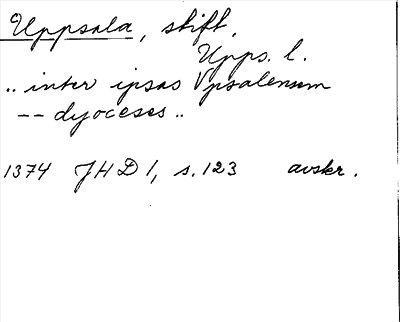 Uppsala, stift,
Upps. l.
.. inter ipsas Vpsalensem
-- dyoceses ..
1374 JHD 1, s. 123 avskr.